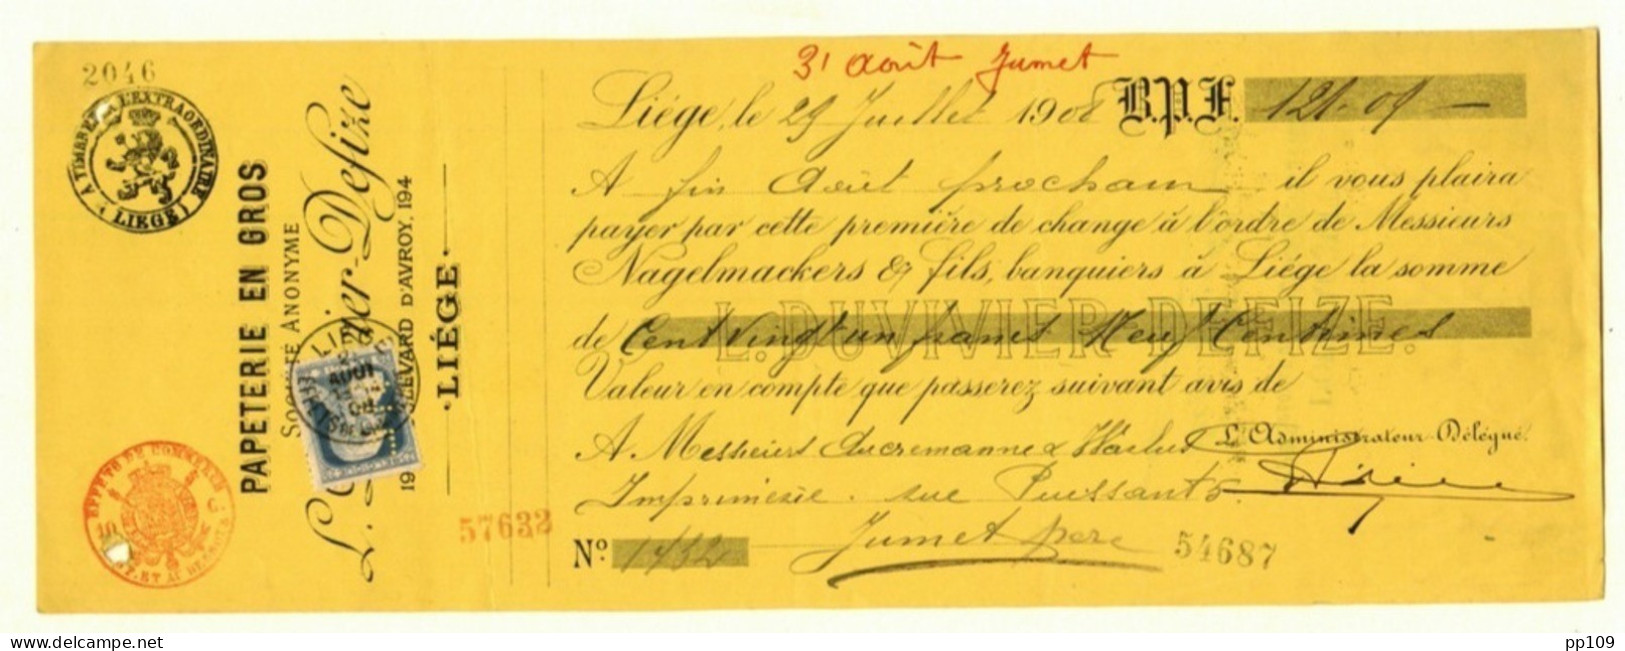 2046
A TIMBRER A L'EXTRAORDINAIRE
LIEGE
PAPETERIE EN GROS
SOCIÉTÉ ANONYME
L. Duvivier-Defize
BOULEVARD D'AVROY, 194
·LIÉGE·
EFFETS DE COMMERCE
10 C.
57632
31 Août Jumet
Liége, le 29 Juillet 1908 B.P.F. 121.09 —
A fin Août prochain il vous plaira
payer par cette première de change à l'ordre de Messieurs
Nagelmackers & fils, banquiers à Liége la somme
de Cent vingt un francs Neuf Centimes
L. DUVIVIER-DEFIZE.
Valeur en compte que passerez suivant avis de
A Messieurs Ducremanne &
L'Administrateur-Délégué.
Imprimerie. rue Puissant 5.
Jumet
Nº 1732
54687
LIEGE
AOUT
08
pp109